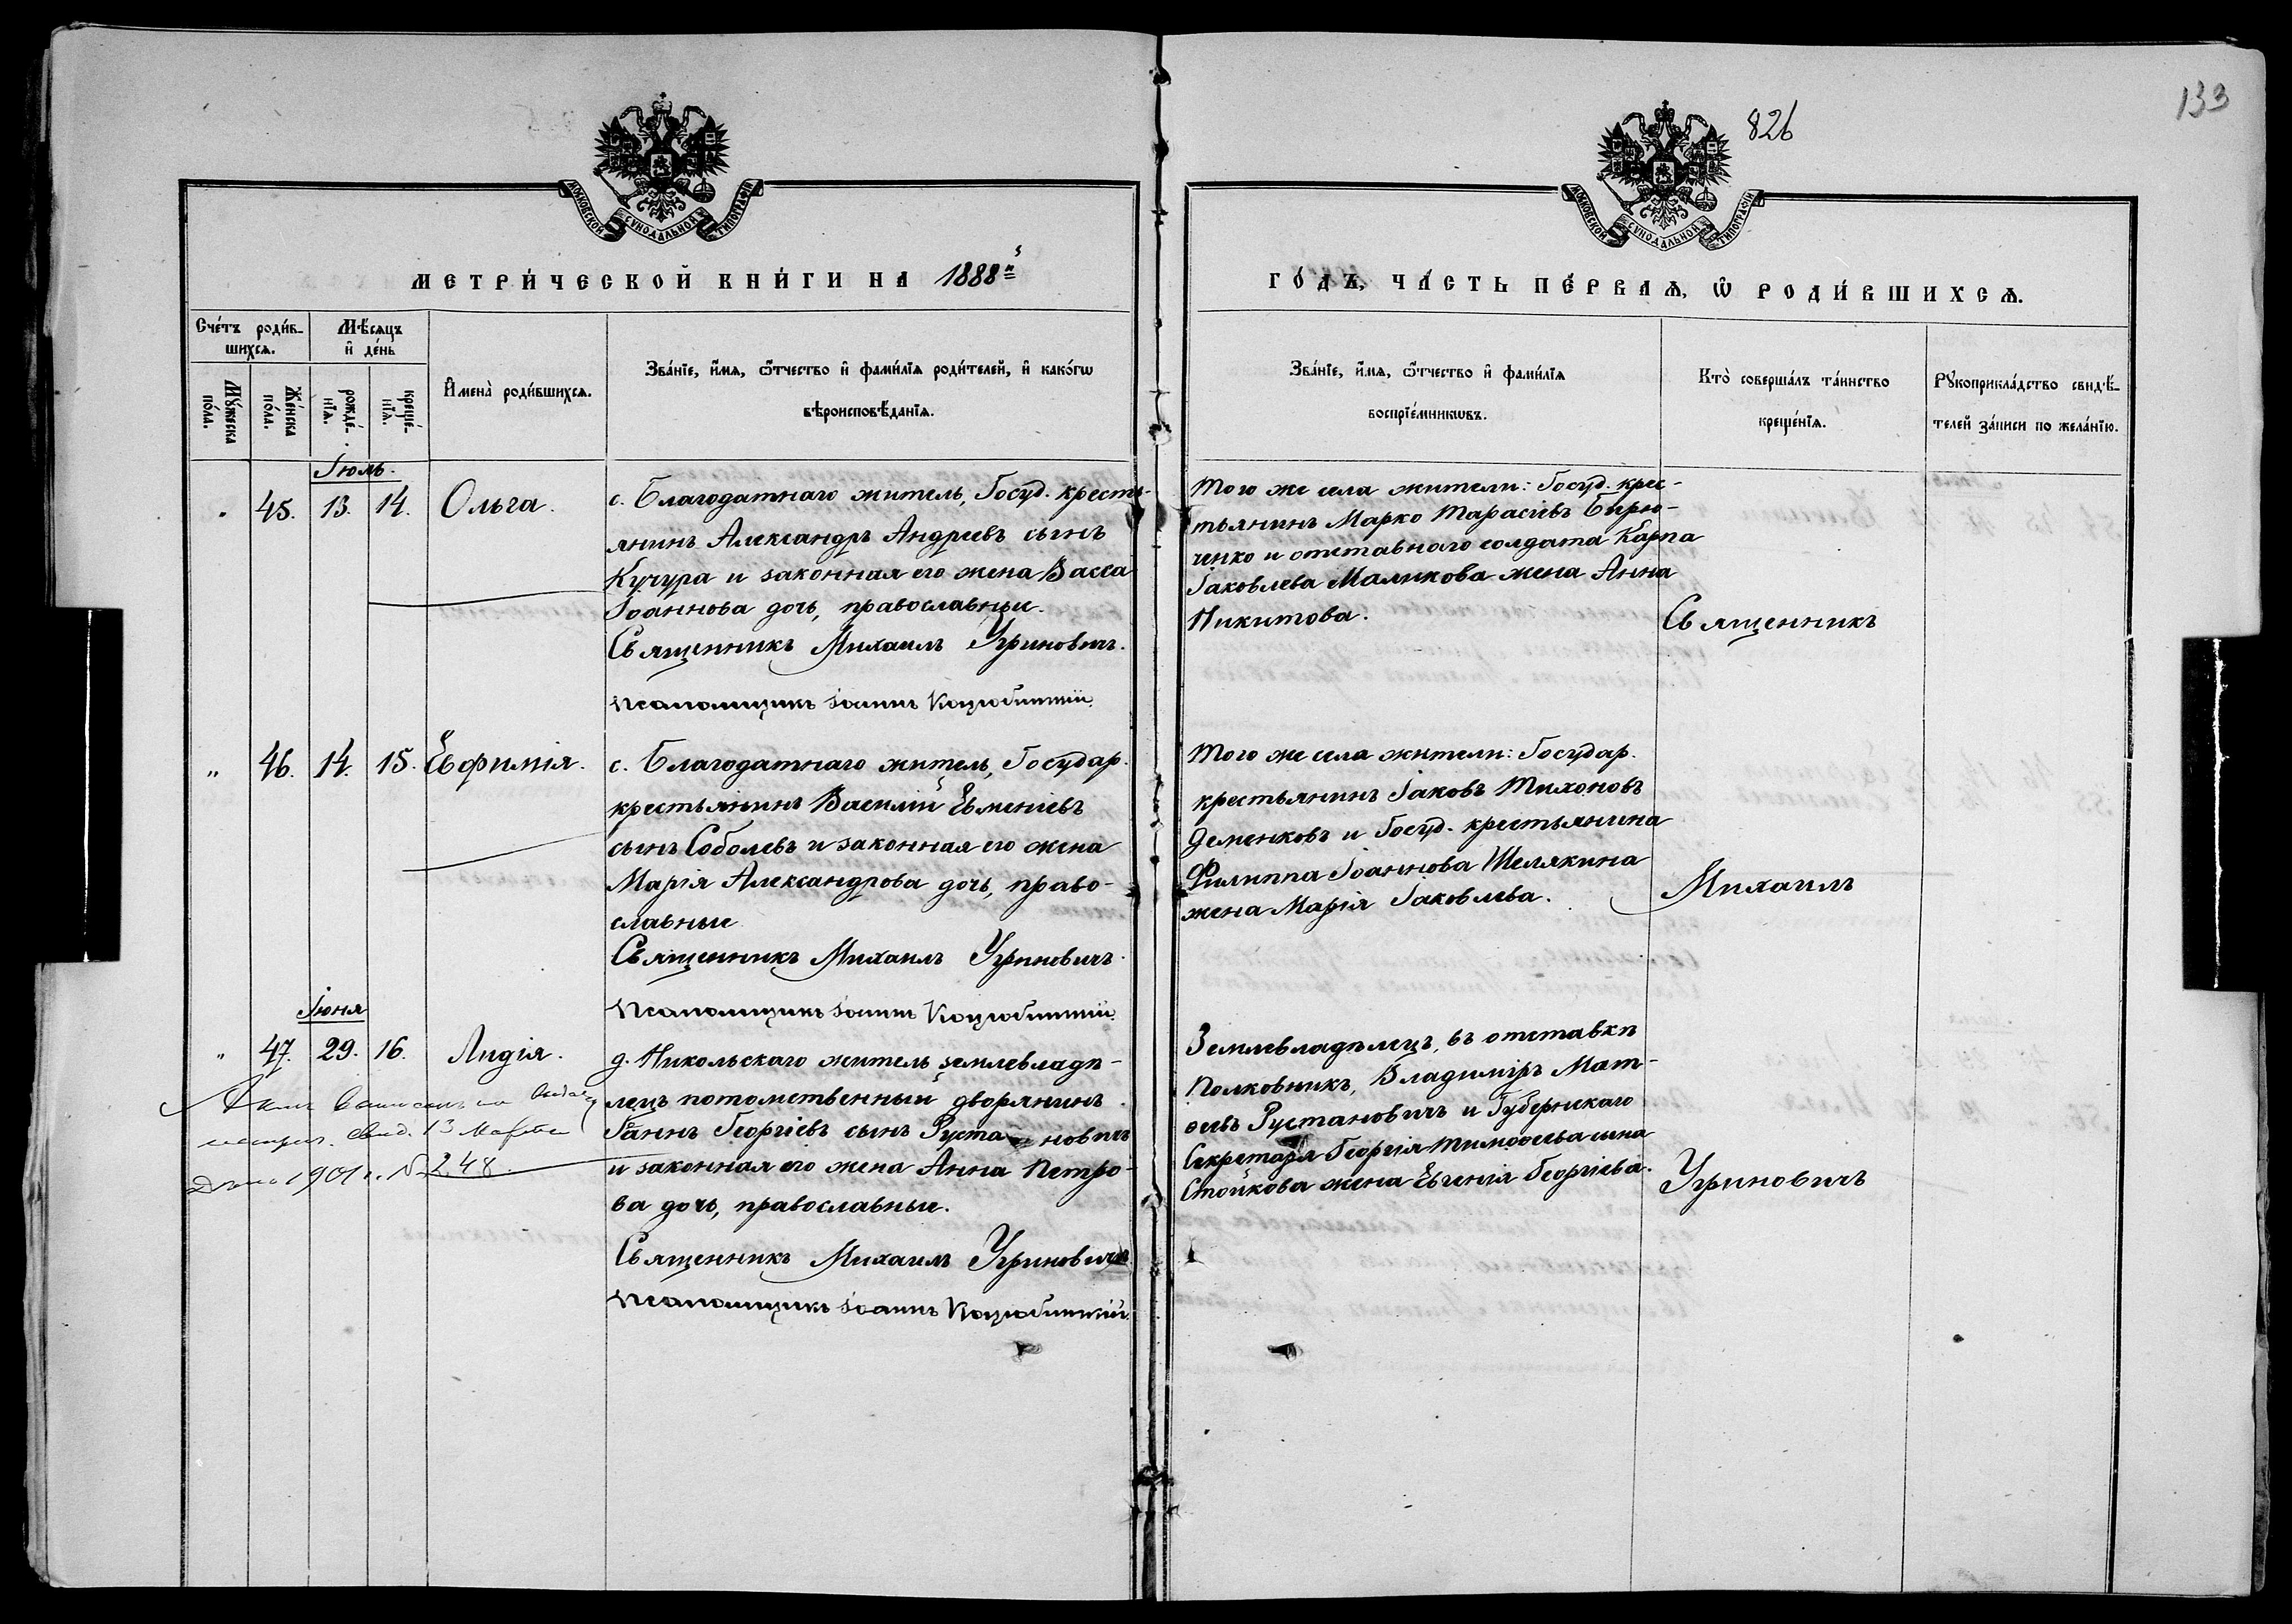 133
826
МОСКОВСКОЙ СѴНОДАЛЬНОЙ ТИПОГРАФІИ
МОСКОВСКОЙ СѴНОДАЛЬНОЙ ТИПОГРАФІИ
МЕТРИ́ЧЕСКОЙ КНИ́ГИ НА 1888й
ГО́ДЪ, ЧА́СТЬ ПЕ́РВАѦ, Ѡ҆ РОДИ́ВШИХСѦ.
Сче́тъ роди́в-
шихсѧ.
Мѣ́сѧцъ
и҆ де́нь
Мꙋ́жеска
по́ла.
Же́нска
по́ла.
рожде́-
нїѧ.
креще́-
нїѧ.
И҆мена̀ роди́вшихсѧ.
Зва́нїе, и҆́мѧ, ѻ҆́тчество и҆ фами́лїѧ роди́телей, и҆ како́гѡ
вѣроисповѣ́данїѧ.
Зва́нїе, и҆́мѧ, ѻ҆́тчество и҆ фами́лїѧ
воспрїе́мникѡвъ.
Кто̀ соверша́лъ та́инство
креще́нїѧ.
Рꙋкоприкла́дство свидѣ́-
телей за́писи по жела́нїю.
Іюль.
" 45. 13. 14. Ольга.
с. Благодатнаго житель, Госуд. кресть-
янинъ Александръ Андреевъ сынъ
Кучура и законная его жена Васса
Іоаннова дочь, православные.
Священникъ Михаилъ Угриновичъ.
Псаломщикъ Іоаннъ Коцюбинскій.
Того же села жители: Госуд. крес-
тьянинъ Марко Тарасіевъ Бирю-
ченко и отставного солдата Карпа
Іаковлева Маликова жена Анна
Никитова.
Священникъ
" 46. 14. 15. Евфимія.
с. Благодатнаго житель, Государ.
крестьянинъ Василій Евменіевъ
сынъ Соболевъ и законная его жена
Марія Александрова дочь, право-
славные
Священникъ Михаилъ Угриновичъ.
Псаломщикъ Іоаннъ Коцюбинскій.
Того же села жители: Государ.
крестьянинъ Іаковъ Тихоновъ
Деменковъ и Госуд. крестьянина
Филиппа Іоаннова Шелякина
жена Марія Іаковлева.
Михаилъ
Іюня
" 47. 29. 16. Лидія.
выдачу
метрич. свид. 13 Марта
1901 г. № 248.
д. Никольскаго житель землевладѣ-
лецъ потомственный дворянинъ
Іоаннъ Георгіевъ сынъ Рустановичъ
и законная его жена Анна Петро-
ва дочь, православные.
Священникъ Михаилъ Угриновичъ
Псаломщикъ Іоаннъ Коцюбинскій.
Землевладѣлецъ, въ отставкѣ
Полковникъ, Владиміръ Мат-
ѳеевъ Рустановичъ и Губернскаго
Секретаря Георгія Тимоѳеева сына
Стойкова жена Евгенія Георгіева.
Угриновичъ